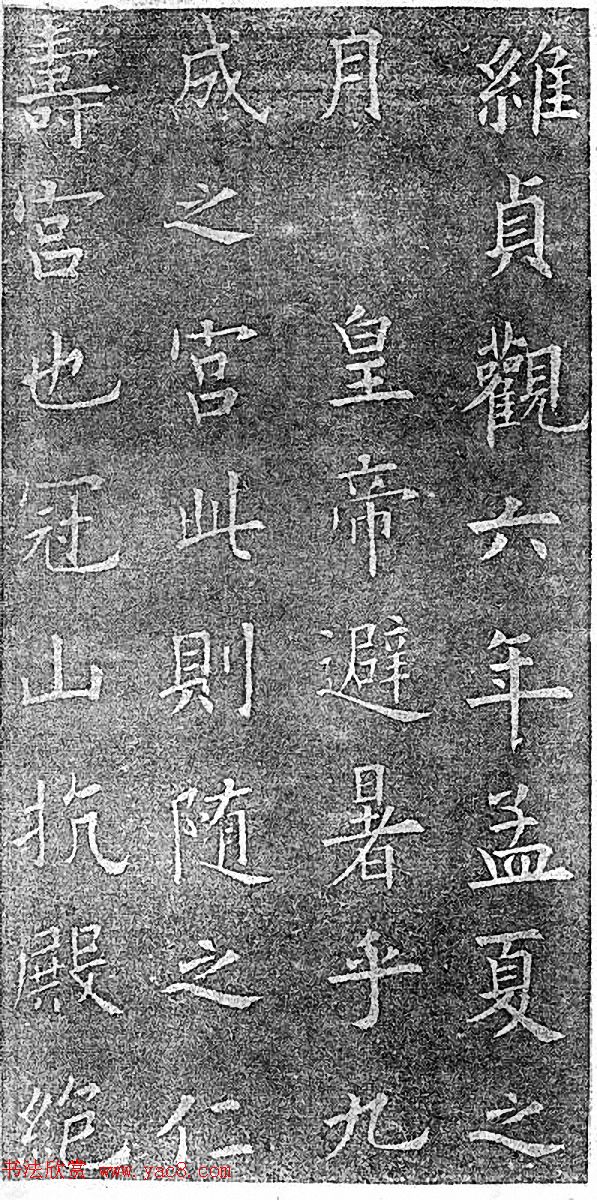 維貞觀六年孟夏之
月 皇帝避暑乎九
成之宮此則随之仁
壽宮也冠山抗殿絶
书法欣赏 www.yac8.com